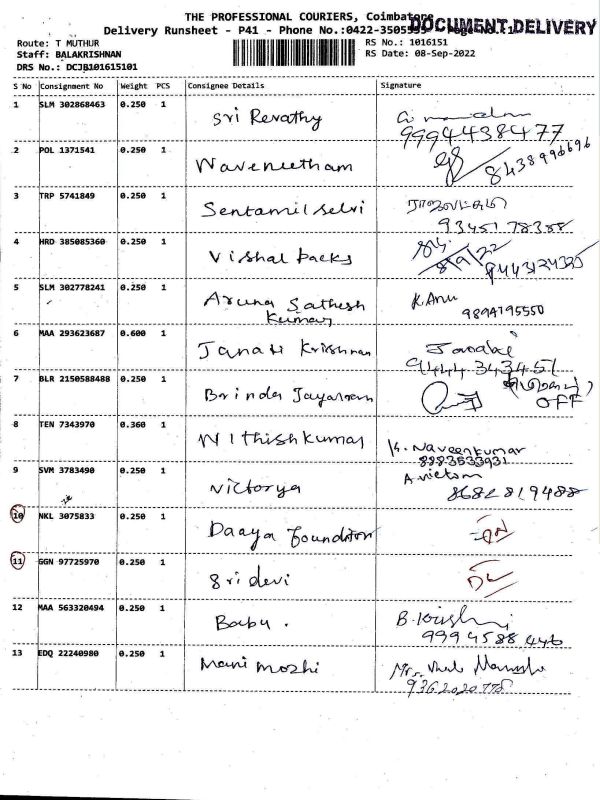 THE PROFESSIONAL COURIERS, Coimbatore
DOCUMENT DELIVERY
Delivery Runsheet - P41 - Phone No.:0422-3505555 - Page No.:1
Route: T MUTHUR
RS No.: 1016151
Staff: BALAKRISHNAN
RS Date: 08-Sep-2022
DRS No.: DCJB101615101
S No Consignment No Weight PCS Consignee Details Signature
1 SLM 302868463 0.250 1 Sri Revathy
9994438477
2 POL 1371541 0.250 1 Waveneetham
8438996696
3 TRP 5741849 0.250 1 Sentamil selvi
93451 78388
4 HRD 385085360 0.250 1 Vishal packs
8/9/22
5 SLM 302778241 0.250 1 Aruna Sathesh Kumar K.Anu
9894795550
6 MAA 293623687 0.600 1 Janaki Krishnan Janaki
94443 43451
7 BLR 2150588488 0.250 1 Brinda Jayaraam
OFF
8 TEN 7343970 0.360 1 Nithishkumar K. Naveenkumar
8883533931
9 SVM 3783490 0.250 1 Victorya A victom
8682819488
10 NKL 3075833 0.250 1 Daaya Foundtion
11 GGN 97725970 0.250 1 Sridevi
12 MAA 563320494 0.250 1 Babu. B.Krish
9994588446
13 EDQ 22240980 0.250 1 Mani mozhi
9362020778